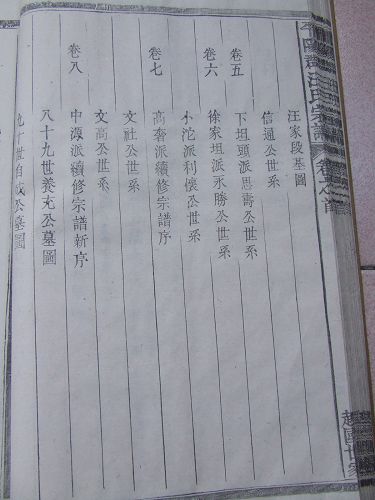 平陽郡汪氏宗譜 卷之首
越國世家
汪家段墓圖
信通公世系
卷五
下坦頭派思壽公世系
卷六
徐家垣派永勝公世系
小沱派利懷公世系
卷七
高奢派續修宗譜序
文社公世系
文高公世系
卷八
中源派續修宗譜新序
八十九世養充公墓圖
九十世自成公墓圖